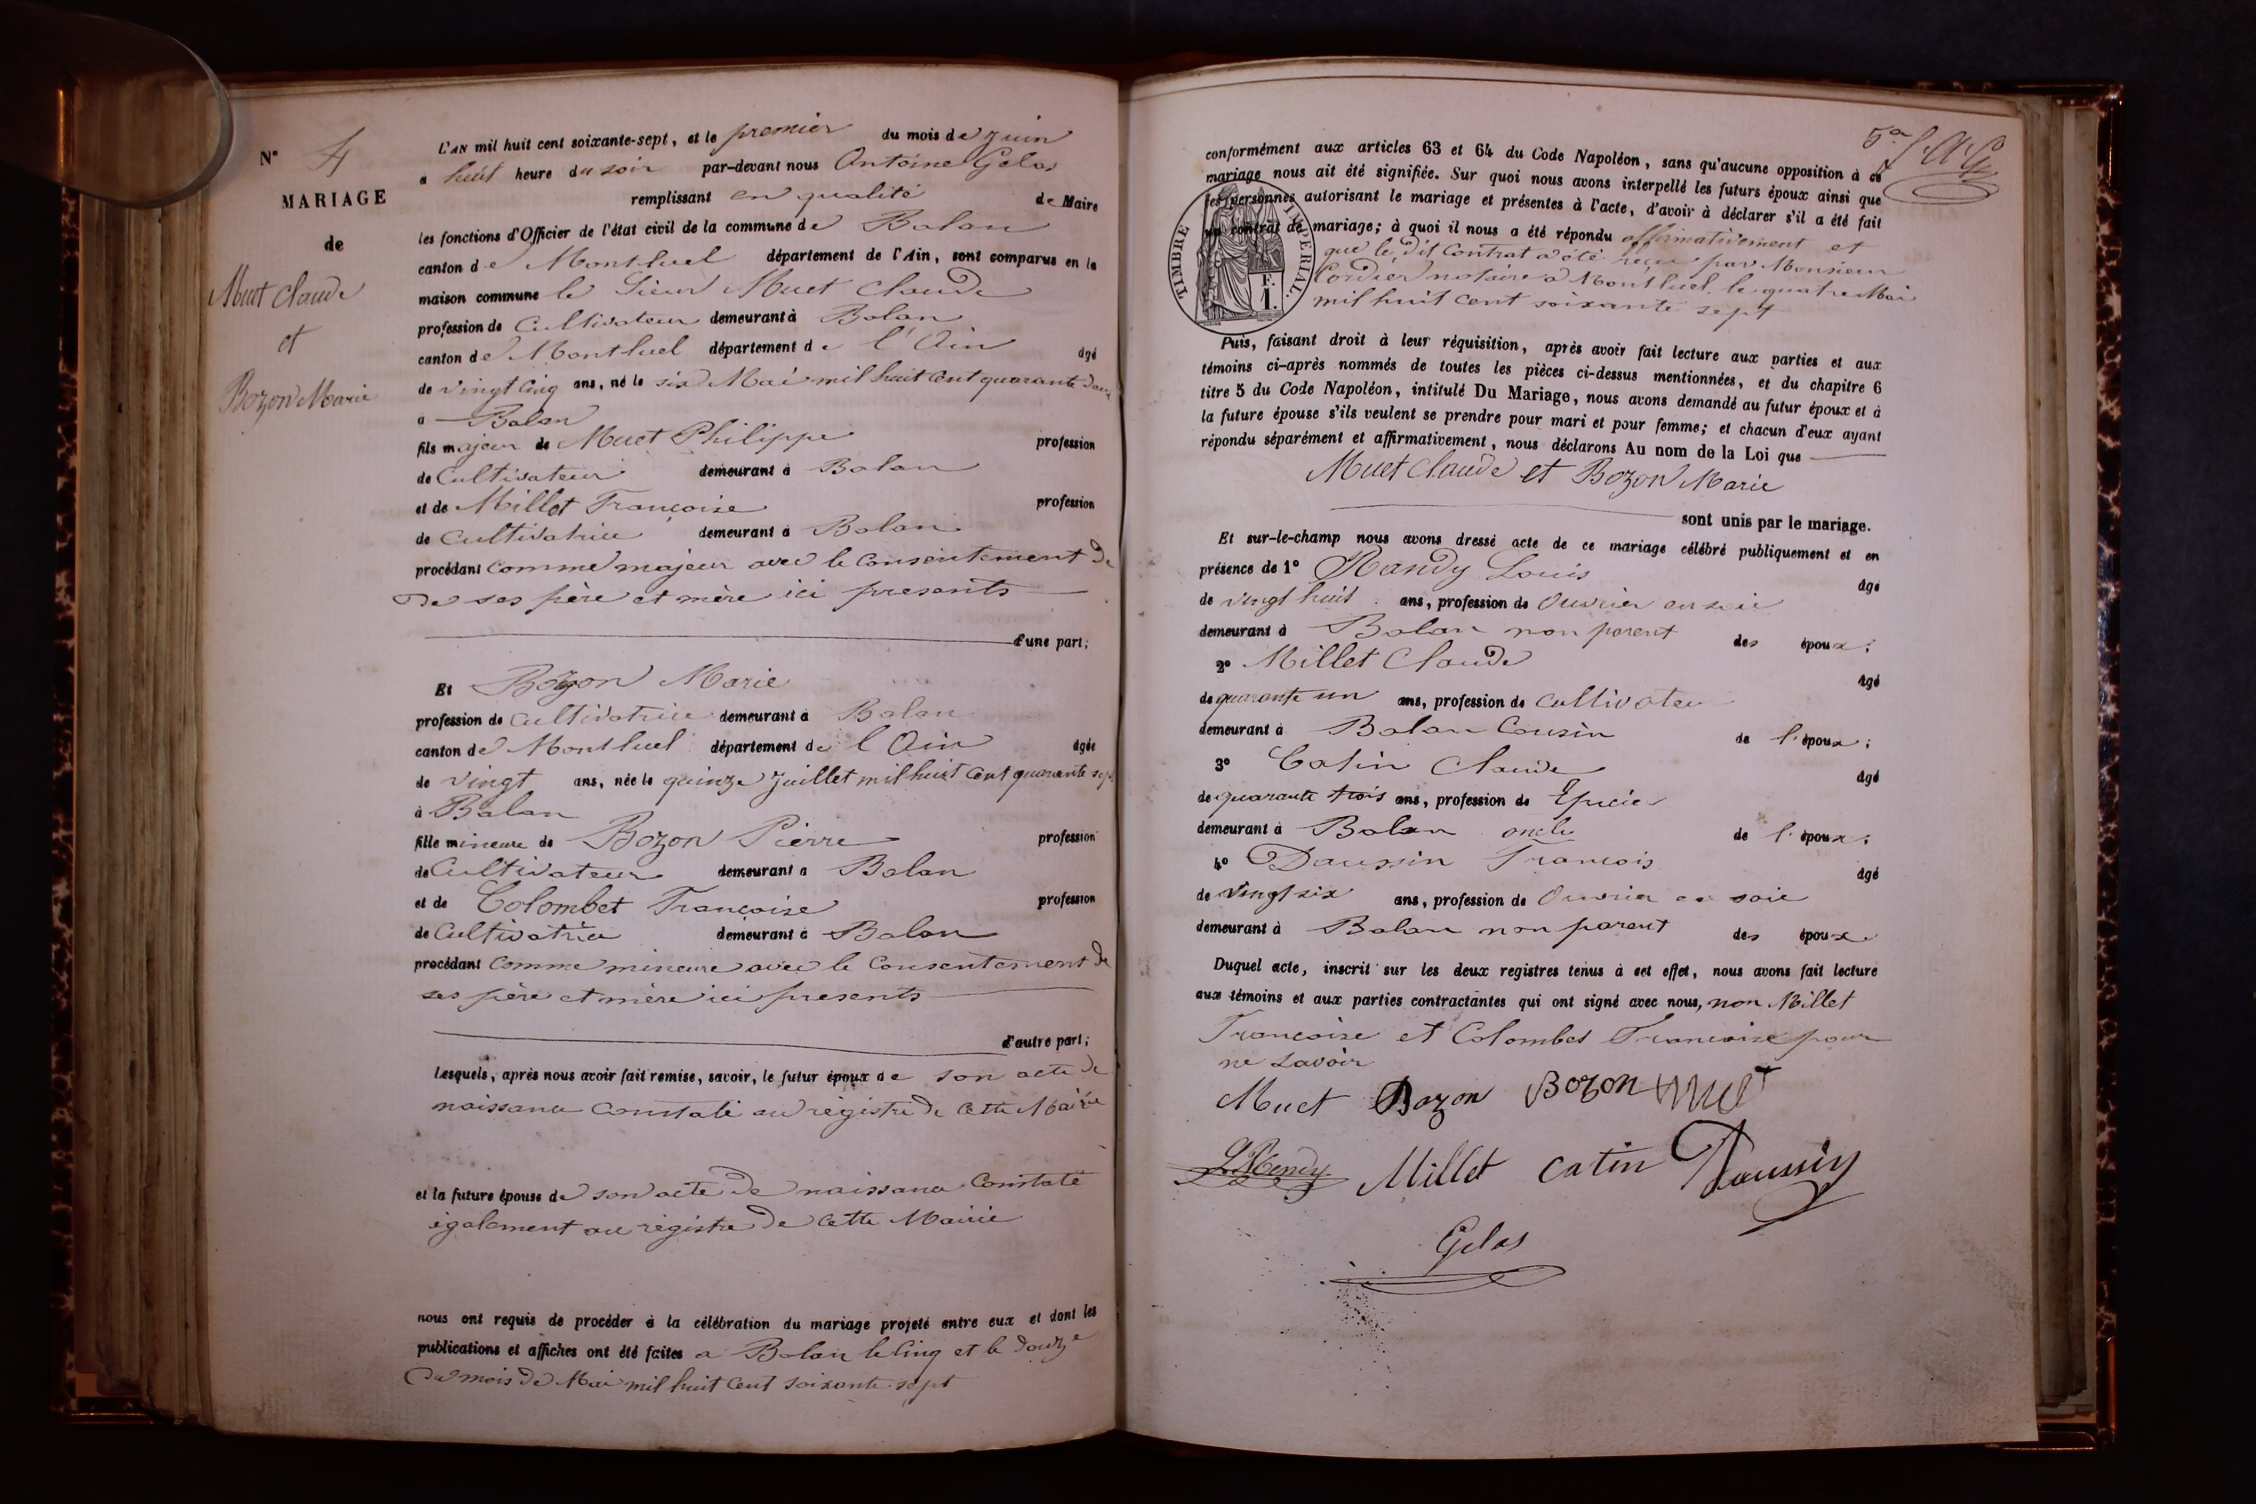 N° 4
MARIAGE
de
Muet Claude
et
Bozon Marie
L'AN mil huit cent soixante-sept, et le premier du mois de Juin
a huit heure du soir par-devant nous Antoine Gelas
remplissant en qualité de Maire
les fonctions d'Officier de l'état civil de la commune de Balan
canton de Montluel département de l'Ain, sont comparus en la
maison commune le Sieur Muet Claude
profession de Cultivateur demeurant à Balan
canton de Montluel département de l'Ain âgé
de vingt cinq ans, né le six Mai mil huit cent quarante deux
a Balan
fils majeur de Muet Philippe profession
de Cultivateur demeurant à Balan
et de Millet Françoise profession
de Cultivatrice demeurant à Balan
procédant comme majeur avec le consentement de
de ses père et mère ici presents
d'une part;
Et Bozon Marie
profession de Cultivatrice demeurant à Balan
canton de Montluel département de l'Ain âgée
de vingt ans, née le quinze Juillet mil huit cent quarante sept
à Balan
fille mineure de Bozon Pierre profession
de Cultivateur demeurant à Balan
et de Colombet Françoise profession
de Cultivatrice demeurant à Balan
procédant comme mineure avec le consentement de
ses père et mère ici presents
d'autre part;
Lesquels, après nous avoir fait remise, savoir, le futur époux de son acte de
naissance constaté au régistre de cette Mairie
et la future épouse de son acte de naissance constaté
également au régistre de cette Mairie
nous ont requis de procéder à la célébration du mariage projeté entre eux et dont les
publications et affiches ont été faites a Balan le cinq et le douze
du mois de Mai mil huit cent soixante sept
5e
conformément aux articles 63 et 64 du Code Napoléon, sans qu'aucune opposition à ce
mariage nous ait été signifiée. Sur quoi nous avons interpellé les futurs époux ainsi que
les personnes autorisant le mariage et présentes à l'acte, d'avoir à déclarer s'il a été fait
un contrat de mariage; à quoi il nous a été répondu affirmativement et
que le dit Contrat a été reçu par Monsieur
Cordier notaire à Montluel le quatre Mai
mil huit cent soixante sept
TIMBRE IMPERIAL.
F.
1.
Puis, faisant droit à leur réquisition, après avoir fait lecture aux parties et aux
témoins ci-après nommés de toutes les pièces ci-dessus mentionnées, et du chapitre 6
titre 5 du Code Napoléon, intitulé Du Mariage, nous avons demandé au futur époux et à
la future épouse s'ils veulent se prendre pour mari et pour femme; et chacun d'eux ayant
répondu séparément et affirmativement, nous déclarons Au nom de la Loi que
Muet Claude et Bozon Marie
sont unis par le mariage.
Et sur-le-champ nous avons dressé acte de ce mariage célébré publiquement et en
présence de 1° Randy Louis âgé
de vingt huit ans, profession de Ouvrier en soie
demeurant à Balan non parent des époux;
2° Millet Claude âgé
de quarante un ans, profession de Cultivateur
demeurant à Balan Cousin de l'époux;
3° Catin Claude âgé
de quarante trois ans, profession de Epicier
demeurant à Balan oncle de l'époux;
4° Daussin François âgé
de vingt six ans, profession de Ouvrier en soie
demeurant à Balan non parent des époux
Duquel acte, inscrit sur les deux registres tenus à cet effet, nous avons fait lecture
aux témoins et aux parties contractantes qui ont signé avec nous, non Millet
Françoise et Colombet Françoise pour
ne savoir
Muet Bozon Bozon Muet
Millet Catin Daussin
Gelas